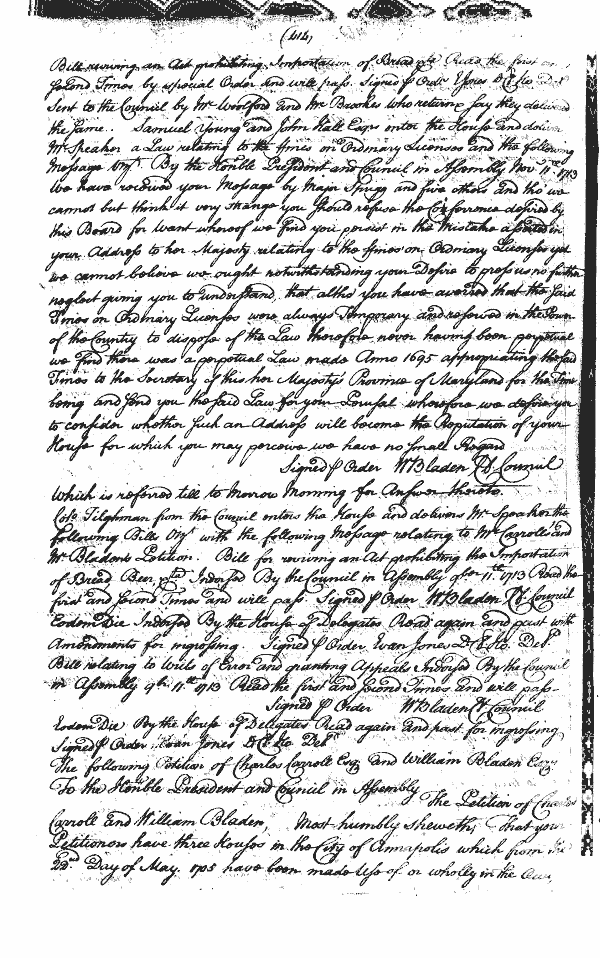 (44)
Bill reviving an Act prohibiting Importation of Bread &ca Read the first and
second Times by special Order and will pass. Signed p Order E Jones Cl Ho Del
Sent to the Council by Mr Woolford and Mr Brookes who return & say they delivered
the same. Samuel Young and John Hall Esqrs enter the House and deliver
Mr Speaker a Law relating to the fines on Ordinary Licenses and the following
Message Vizt. By the Honble President and Council in Assembly Novr 11th 1713
We have received your Message by Major Sprigg and five others and tho we
cannot but think it very strange you should refuse the Conference desired by
this Board for want whereof we find you persist in the Mistake asserted in
your Address to her Majesty relating to the fines on Ordinary Licenses yet
we cannot believe we ought notwithstanding your Desire to press us no further
neglect giving you to understand, that altho you have averred that the said
Fines on Ordinary Licenses were always Temporary and reserved in the Power
of the Country to dispose of the Law therefore never having been perpetual
we find there was a perpetual Law made Anno 1695 appropriating the said
Fines to the Secretary of this her Majesty's Province of Maryland for the Time
being and send you the said Law for your Perusal wherefore we desire you
to consider whether such an Address will become the Reputation of your
House for which you may perceive we have no small Regard
Signed p Order W Bladen Cl Council
Which is referred till to Morrow Morning for Answer thereto.
Colo Tilghman from the Council enters the House and delivers Mr Speaker the
following Bills Vizt with the following Message relating to Mr Carrolls and
Mr Bladens Petition. Bill for reviving an Act prohibiting the Importation
of Bread Beer &ca Indorsed By the Council in Assembly 9ber 11th 1713 Read the
first and second Times and will pass. Signed p Order W Bladen Cl Council
Eodem Die Indorsed By the House of Delegates Read again and past with
Amendments for ingrossing. Signed p Order Evan Jones Cl Ho. Del.
Bill relating to Writs of Error and granting Appeals Indorsed By the Council
in Assembly 9br 11th 1713 Read the first and second Times and will pass
Signed p Order W Bladen Cl Council
Eodem Die By the House of Delegates Read again and past for ingrossing
Signed p Order Evan Jones Cl Ho Del
The following Petition of Charles Carroll Esqr and William Bladen Esqr
To the Honble President and Council in Assembly
The Petition of Charles
Carroll and William Bladen, Most humbly sheweth, That your
Petitioners have three Houses in the City of Annapolis which from the
22d Day of May 1705 have been made Use of or wholly in the